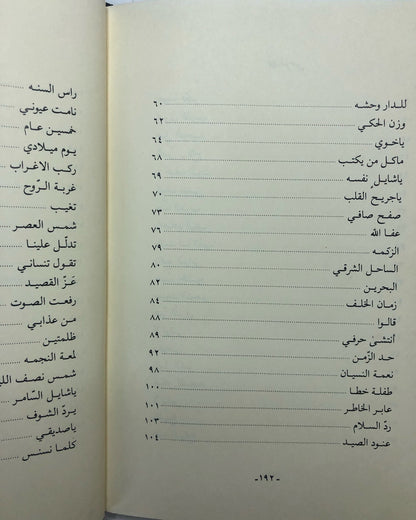 للدار وحشه ٦٠
وزن الحكي ٦٢
ياخوي ٦٤
ماكل من يكتب ٦٨
ياشايل نفسه ٦٩
ياجريح القلب ٧٠
صفح صافي ٧٣
عفا الله ٧٦
الزكمه ٧٩
الساحل الشرقي ٨٠
البحرين ٨٢
زمان الخلف ٨٤
قالوا ٨٨
أنتشى حرفي ٨٩
حد الزّمن ٩٢
نعمة النسيان ٩٨
طفلة خطا ١٠٠
عابر الخاطر ١٠١
ردّ السلام ١٠٣
عنود الصيد ١٠٤
-١٩٢-
راس السنه
نامت عيوني
خمسين عام
يوم ميلادي
ركب الاغراب
غربة الرّوح
تغيب
شمس العصر
تدلّل علينا
تقول تنساني
عَزّ القصيد
رفعت الصوت
من عذابي
ظلمتين
لمعة النجمه
شمس نصف
ياشايل السّامر
يردّ الشوف
ياصديقي
كلما نسنس